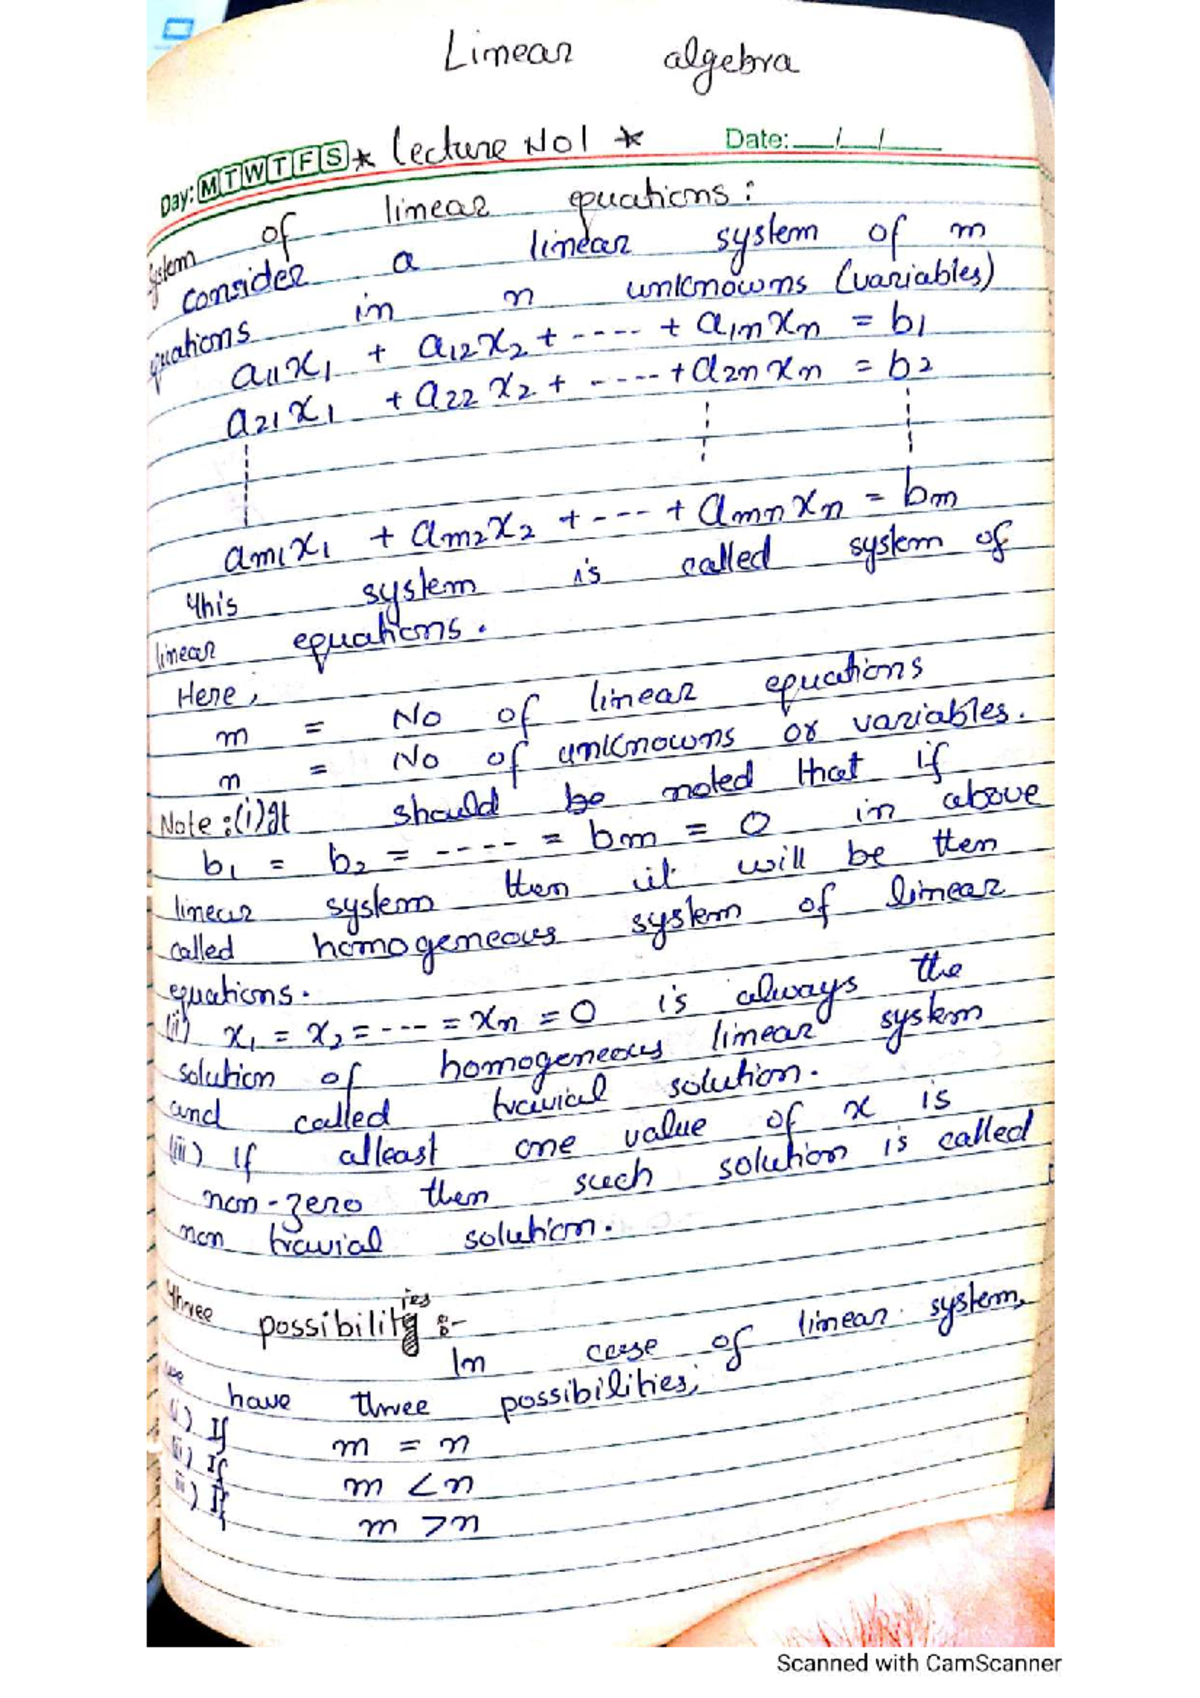 Linear algebra
Day: M T W T F S * Lecture No 1 * Date: __/__/__
System of linear equations:
consider a linear system of m
equations in n unknowns (variables)
a11x1 + a12x2 + ---- + a1nxn = b1
a21x1 + a22x2 + ---- + a2nxn = b2
am1x1 + am2x2 + ---- + amnxn = bm
This system is called system of
linear equations.
Here,
m = No of linear equations
n = No of unknowns or variables.
Note:(i) It should be noted that if
b1 = b2 = ---- = bm = 0 in above
linear system then it will be then
called homogeneous system of linear
equations.
(ii) x1 = x2 = --- = xn = 0 is always the
solution of homogeneous linear system
and called travial solution.
(iii) If atleast one value of x is
non-zero then such solution is called
non travial solution.
Three possibilities :-
In case of linear system,
we have three possibilities,
(i) If m = n
(ii) If m < n
(iii) If m > n
Scanned with CamScanner